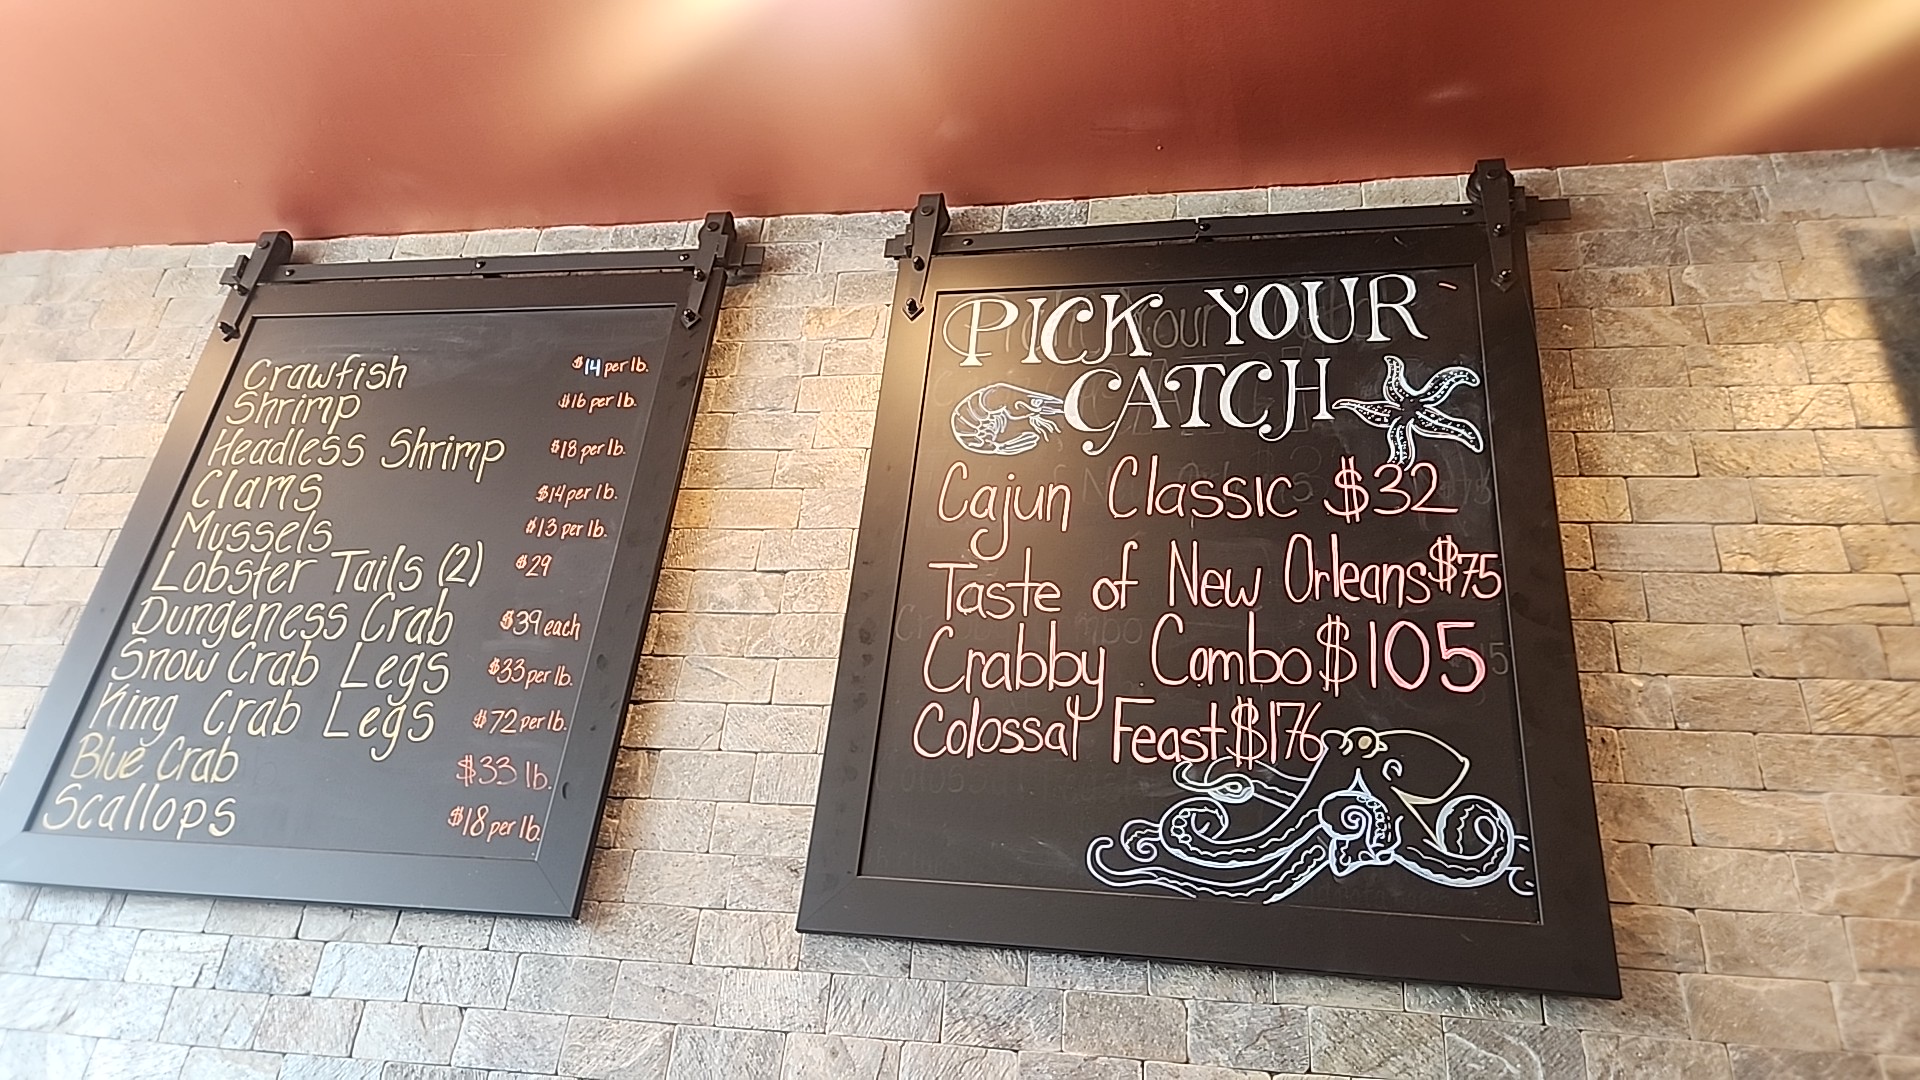 Crawfish $14 per lb.
Shrimp $16 per lb.
Headless Shrimp $18 per lb.
Clams $14 per lb.
Mussels $13 per lb.
Lobster Tails (2) $29
Dungeness Crab $39 each
Snow Crab Legs $33 per lb.
King Crab Legs $72 per lb.
Blue Crab $33 lb.
Scallops $18 per lb.
PICK YOUR
CATCH
Cajun Classic $32
Taste of New Orleans $75
Crabby Combo $105
Colossal Feast $176